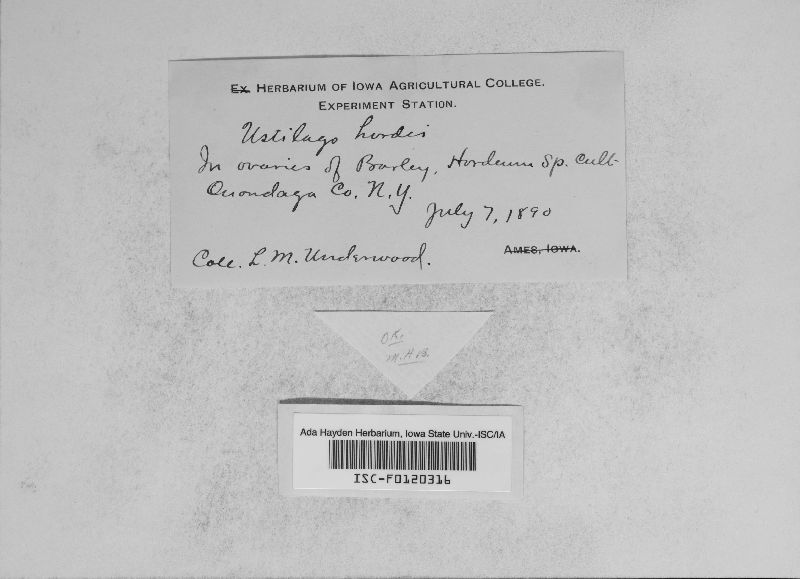 Ex. Herbarium of Iowa Agricultural College.
Experiment Station.
Ustilago hordei
In ovaries of Barley, Hordeum Sp. Cult
Onondaga Co. N.Y.
July 7, 1890
Coll. L. M. Underwood.
Ames, Iowa.
OK.
M.H.B.
Ada Hayden Herbarium, Iowa State Univ.-ISC/IA
ISC-F0120316